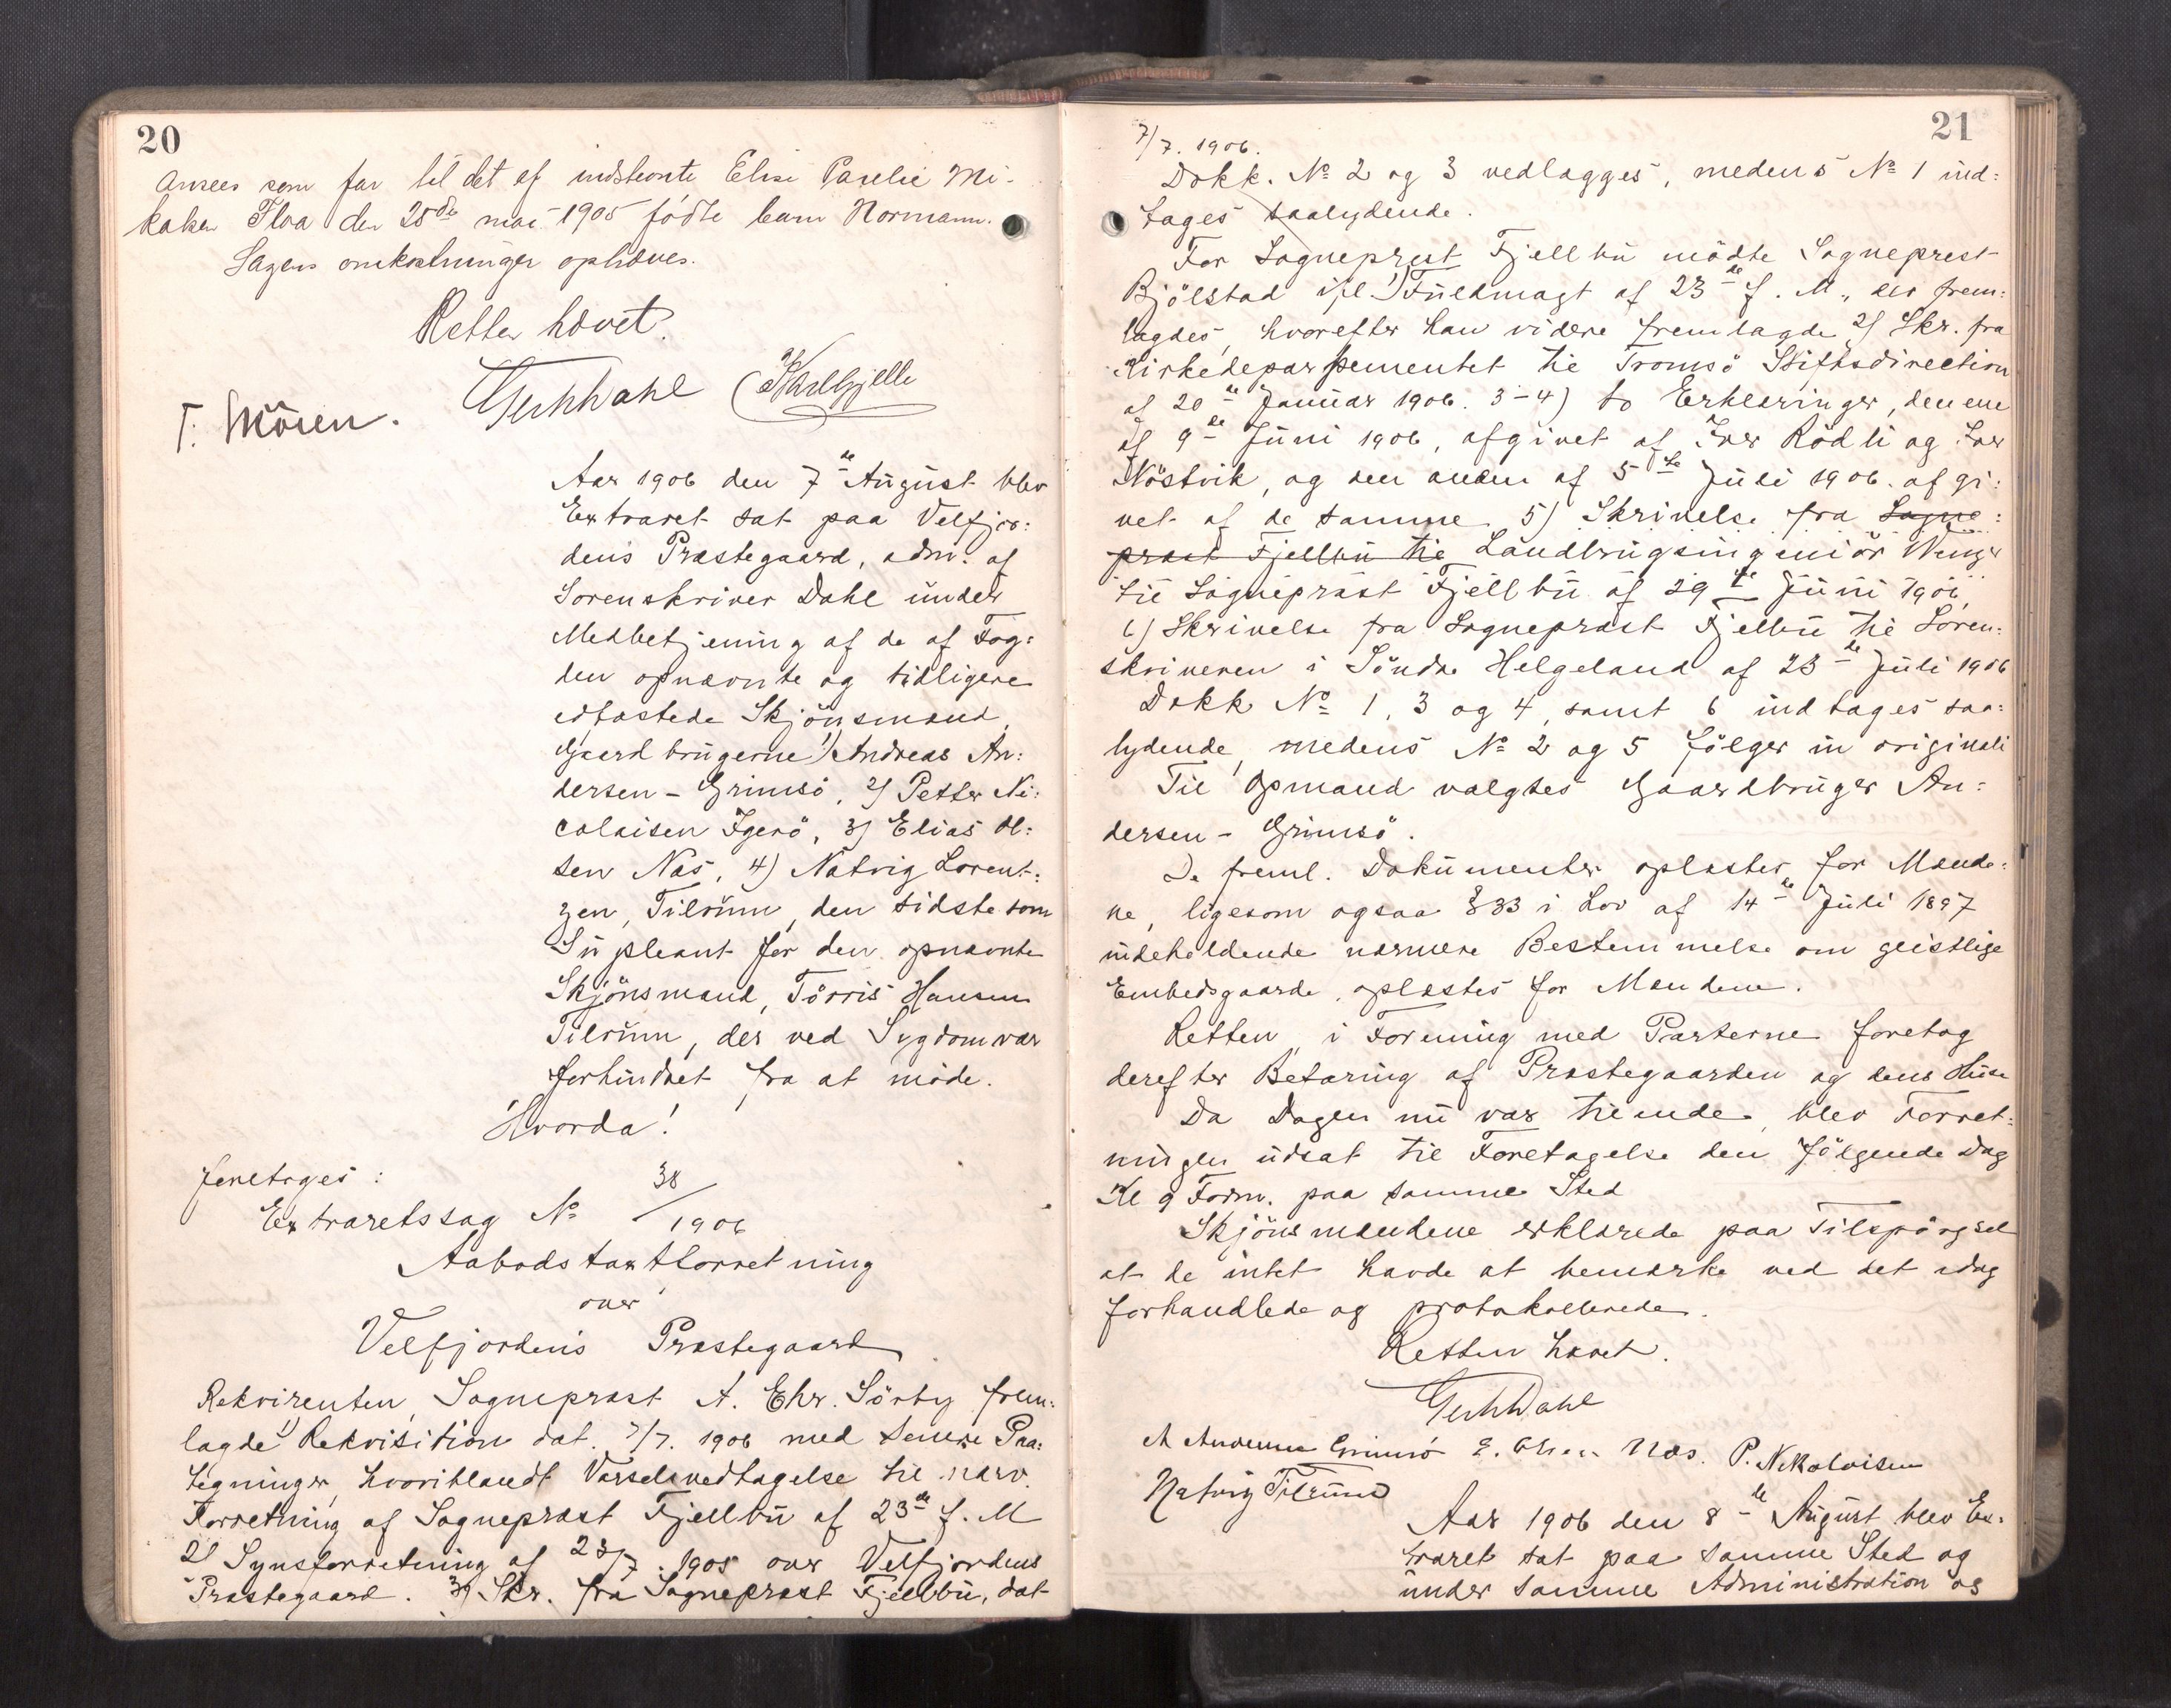 20
ansees som far til det af indstevnte Elise Paulie Mi-
kalsen Floa den 25de mai 1905 födte barn Normann.
Sagens omkostninger ophæves.
Retten hævet.
GerhDahl
T. Mösen.
Aar 1906 den 7de August blev
Extraret sat paa Velfjor:
dens Præstegaard, adm. af
Sorenskriver Dahl under
Medbetjening af de af Fog:
den opnævnte og tidligere
edfæstede Skjönsmænd,
Gaardbrugerne 1) Andreas An:
dersen - Grimsö, 2) Petter Ni:
colaisen Igerö, 3) Elias Ol:
sen Næs, 4) Natvig Lorent:
zen, Tilrum, den sidste som
Supleant for den opnævnte
Skjönsmand, Törris Hansen
Tilrum, der ved Sygdom var
forhindret fra at möde.
Hvorda!
foretages:
Extraretssag No 38/1906
Aabodstaxtforretning
over
Velfjordens Præstegaard
Rekvirenten, Sognepræst A. Chr. Sörby frem:
lagde 1) Rekvisition dat. 7/7. 1906 med senere Paa:
tegninger, hvoriblandt Varselsvedtagelse til nærv.
Forretning af Sognepræst Fjellbu af 23de f. M
2) Synsforretning af 28/7. 1905 over Velfjordens
Præstegaard. 3) Skr. fra Sognepræst Fjellbu, dat
21
7/7. 1906.
Dokk. No 2 og 3 vedlægges, medens No 1 ind:
tages saalydende.
For Sogneprest Fjellbu mödte Sogneprest
Bjölstad ifl. 1) Fuldmagt af 23de f. M., der frem:
lagdes, hvorefter han videre fremlagde 2) Skr. fra
Kirkedepartementet til Tromsö Stiftsdirection
af 20de Januar 1906. 3-4) to Erklæringer, den ene
af 9de Juni 1906, afgivet af Iver Rödli og Iver
Nöstvik, og den anden af 5te Juli 1906. afgi:
vet af de samme. 5) Skrivelse fra Sogne:
præst Fjellbu til Landbrugsingeniör Wenger
til Sognepræst Fjellbu af 29de Juni 1906
6) Skrivelse fra Sognepræst Fjellbu til Soren:
skriveren i Söndre Helgeland af 23de Juli 1906
Dokk No 1, 3 og 4, samt 6 indtages saa:
lydende, medens No 2 og 5 fölger in originali
Til Opmand valgtes Gaardbruger An:
dersen - Grimsö.
De freml. Dokumenter oplæstes for Mænde:
ne, ligesom ogsaa §33 i Lov af 14de Juli 1897
indeholdende nærmere Bestemmelse om geistlige
Embedsgaarde, oplæstes for Mændene.
Retten i Forening med Parterne foretog
derefter Befaring af Præstegaarden og dens Huse
Da Dagen nu var tilende, blev Forret:
ningen udsat til Foretagelse den fölgende Dag
Kl 9 Form. paa samme Sted
Skjönsmændene erklærede paa Tilspörgsel
at de intet havde at bemærke ved det idag
forhandlede og protokollerede.
Retten hævet.
GerhDahl
A Andersen Grimsö E. Olsen Næs. P. Nikolaisen
Natvig Tilrum
Aar 1906 den 8de August blev Ex:
traret sat paa samme Sted og
under samme Administration og